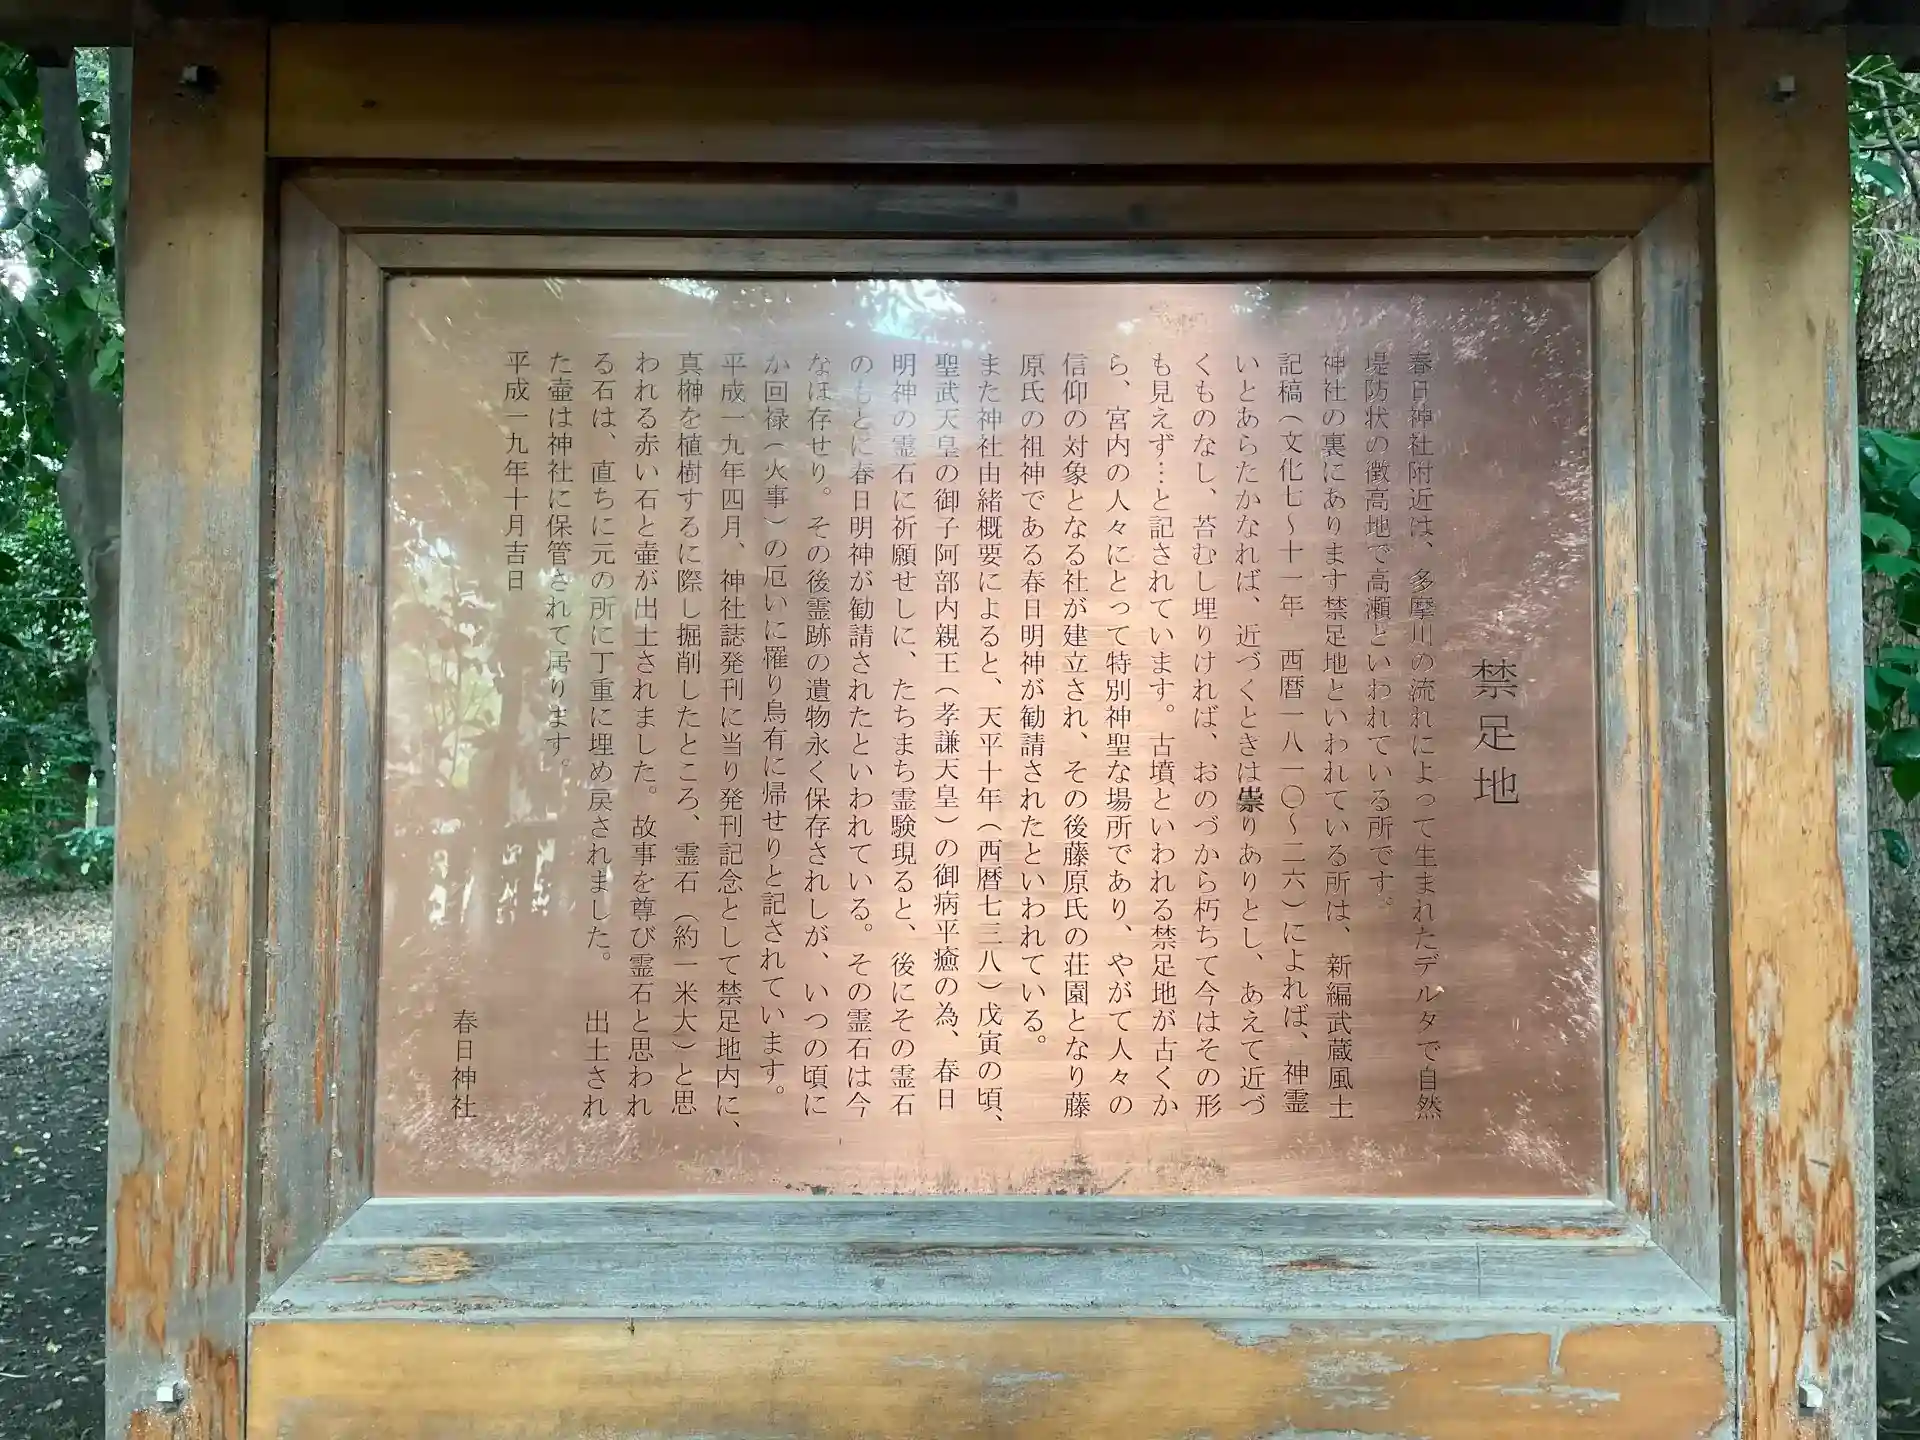 禁足地
春日神社附近は、多摩川の流れによって生まれたデルタで自然
堤防状の徴高地で高瀬といわれている所です。
神社の裏にあります禁足地といわれている所は、新編武蔵風土
記稿（文化七〜十一年　西暦一八一〇〜二六）によれば、神霊
いとあらたかなれば、近づくときは祟りありとし、あえて近づ
くものなし、苔むし埋りければ、おのづから朽ちて今はその形
も見えず…と記されています。古墳といわれる禁足地が古くか
ら、宮内の人々にとって特別神聖な場所であり、やがて人々の
信仰の対象となる社が建立され、その後藤原氏の荘園となり藤
原氏の祖神である春日明神が勧請されたといわれている。
また神社由緒概要によると、天平十年（西暦七三八）戊寅の頃、
聖武天皇の御子阿部内親王（孝謙天皇）の御病平癒の為、春日
明神の霊石に祈願せしに、たちまち霊験現ると、後にその霊石
のもとに春日明神が勧請されたといわれている。その霊石は今
なほ存せり。その後霊跡の遺物永く保存されしが、いつの頃に
か回禄（火事）の厄いに罹り烏有に帰せりと記されています。
平成一九年四月、神社誌発刊に当り発刊記念として禁足地内に、
真榊を植樹するに際し掘削したところ、霊石（約一米大）と思
われる赤い石と壷が出土されました。故事を尊び霊石と思われ
る石は、直ちに元の所に丁重に埋め戻されました。　出土され
た壷は神社に保管されて居ります。
平成一九年十月吉日
春日神社